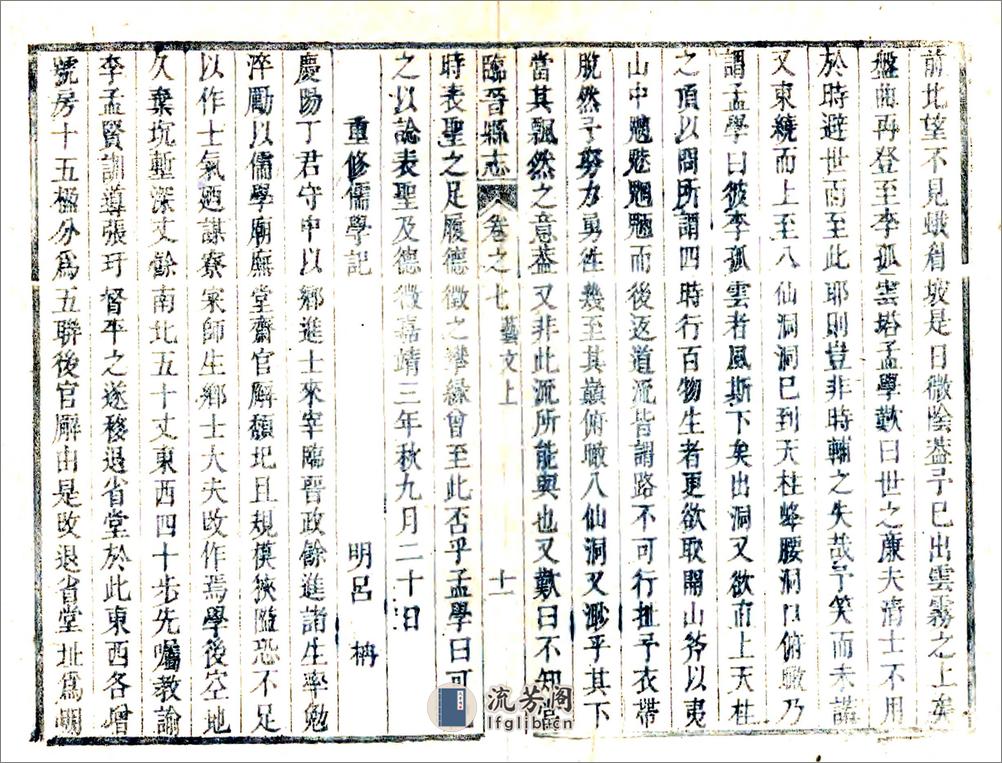 前北望不見峨眉坡是日微陰葢予已出雲霧之上矣
盤曲再登至李孤雲塔孟學歎曰世之廉夫清士不用
於時避世而至此耶則豈非時輔之失哉予笑而未諾
又東繞而上至八仙洞洞已到天柱峰腰洞口俯瞰乃
謂孟學曰彼李孤雲者風斯下矣出洞又欲南上天柱
之頂以問所謂四時行百物生者更欲取開山斧以夷
山中魑魅魍魎而後返道流皆謂路不可行扯予衣帶
脫然予努力勇往幾至其巔俯瞰八仙洞又渺乎其下
當其飄然之意葢又非此流所能與也又歎曰不知
臨晉縣志 卷之七 藝文上 十一
時表聖之足履德徵之攀緣曾至此否乎孟學曰可
之以論表聖及德徵嘉靖三年秋九月二十日
重修儒學記 明呂柟
慶陽丁君守中以鄉進士來宰臨晉政餘進諸生率勉
淬勵以儒學廟廡堂齋官廨頽圯且規模狹隘恐不足
以作士氣廼謀寮寀師生鄉士大夫改作焉學後空地
久棄坑塹深丈餘南北五十丈東西四十步先囑教諭
李孟賢訓導張玗督平之遂移退省堂於此東西各增
號房十五楹分爲五聯後官廨由是改退省堂址爲明
流芳阁
lfglib.cn